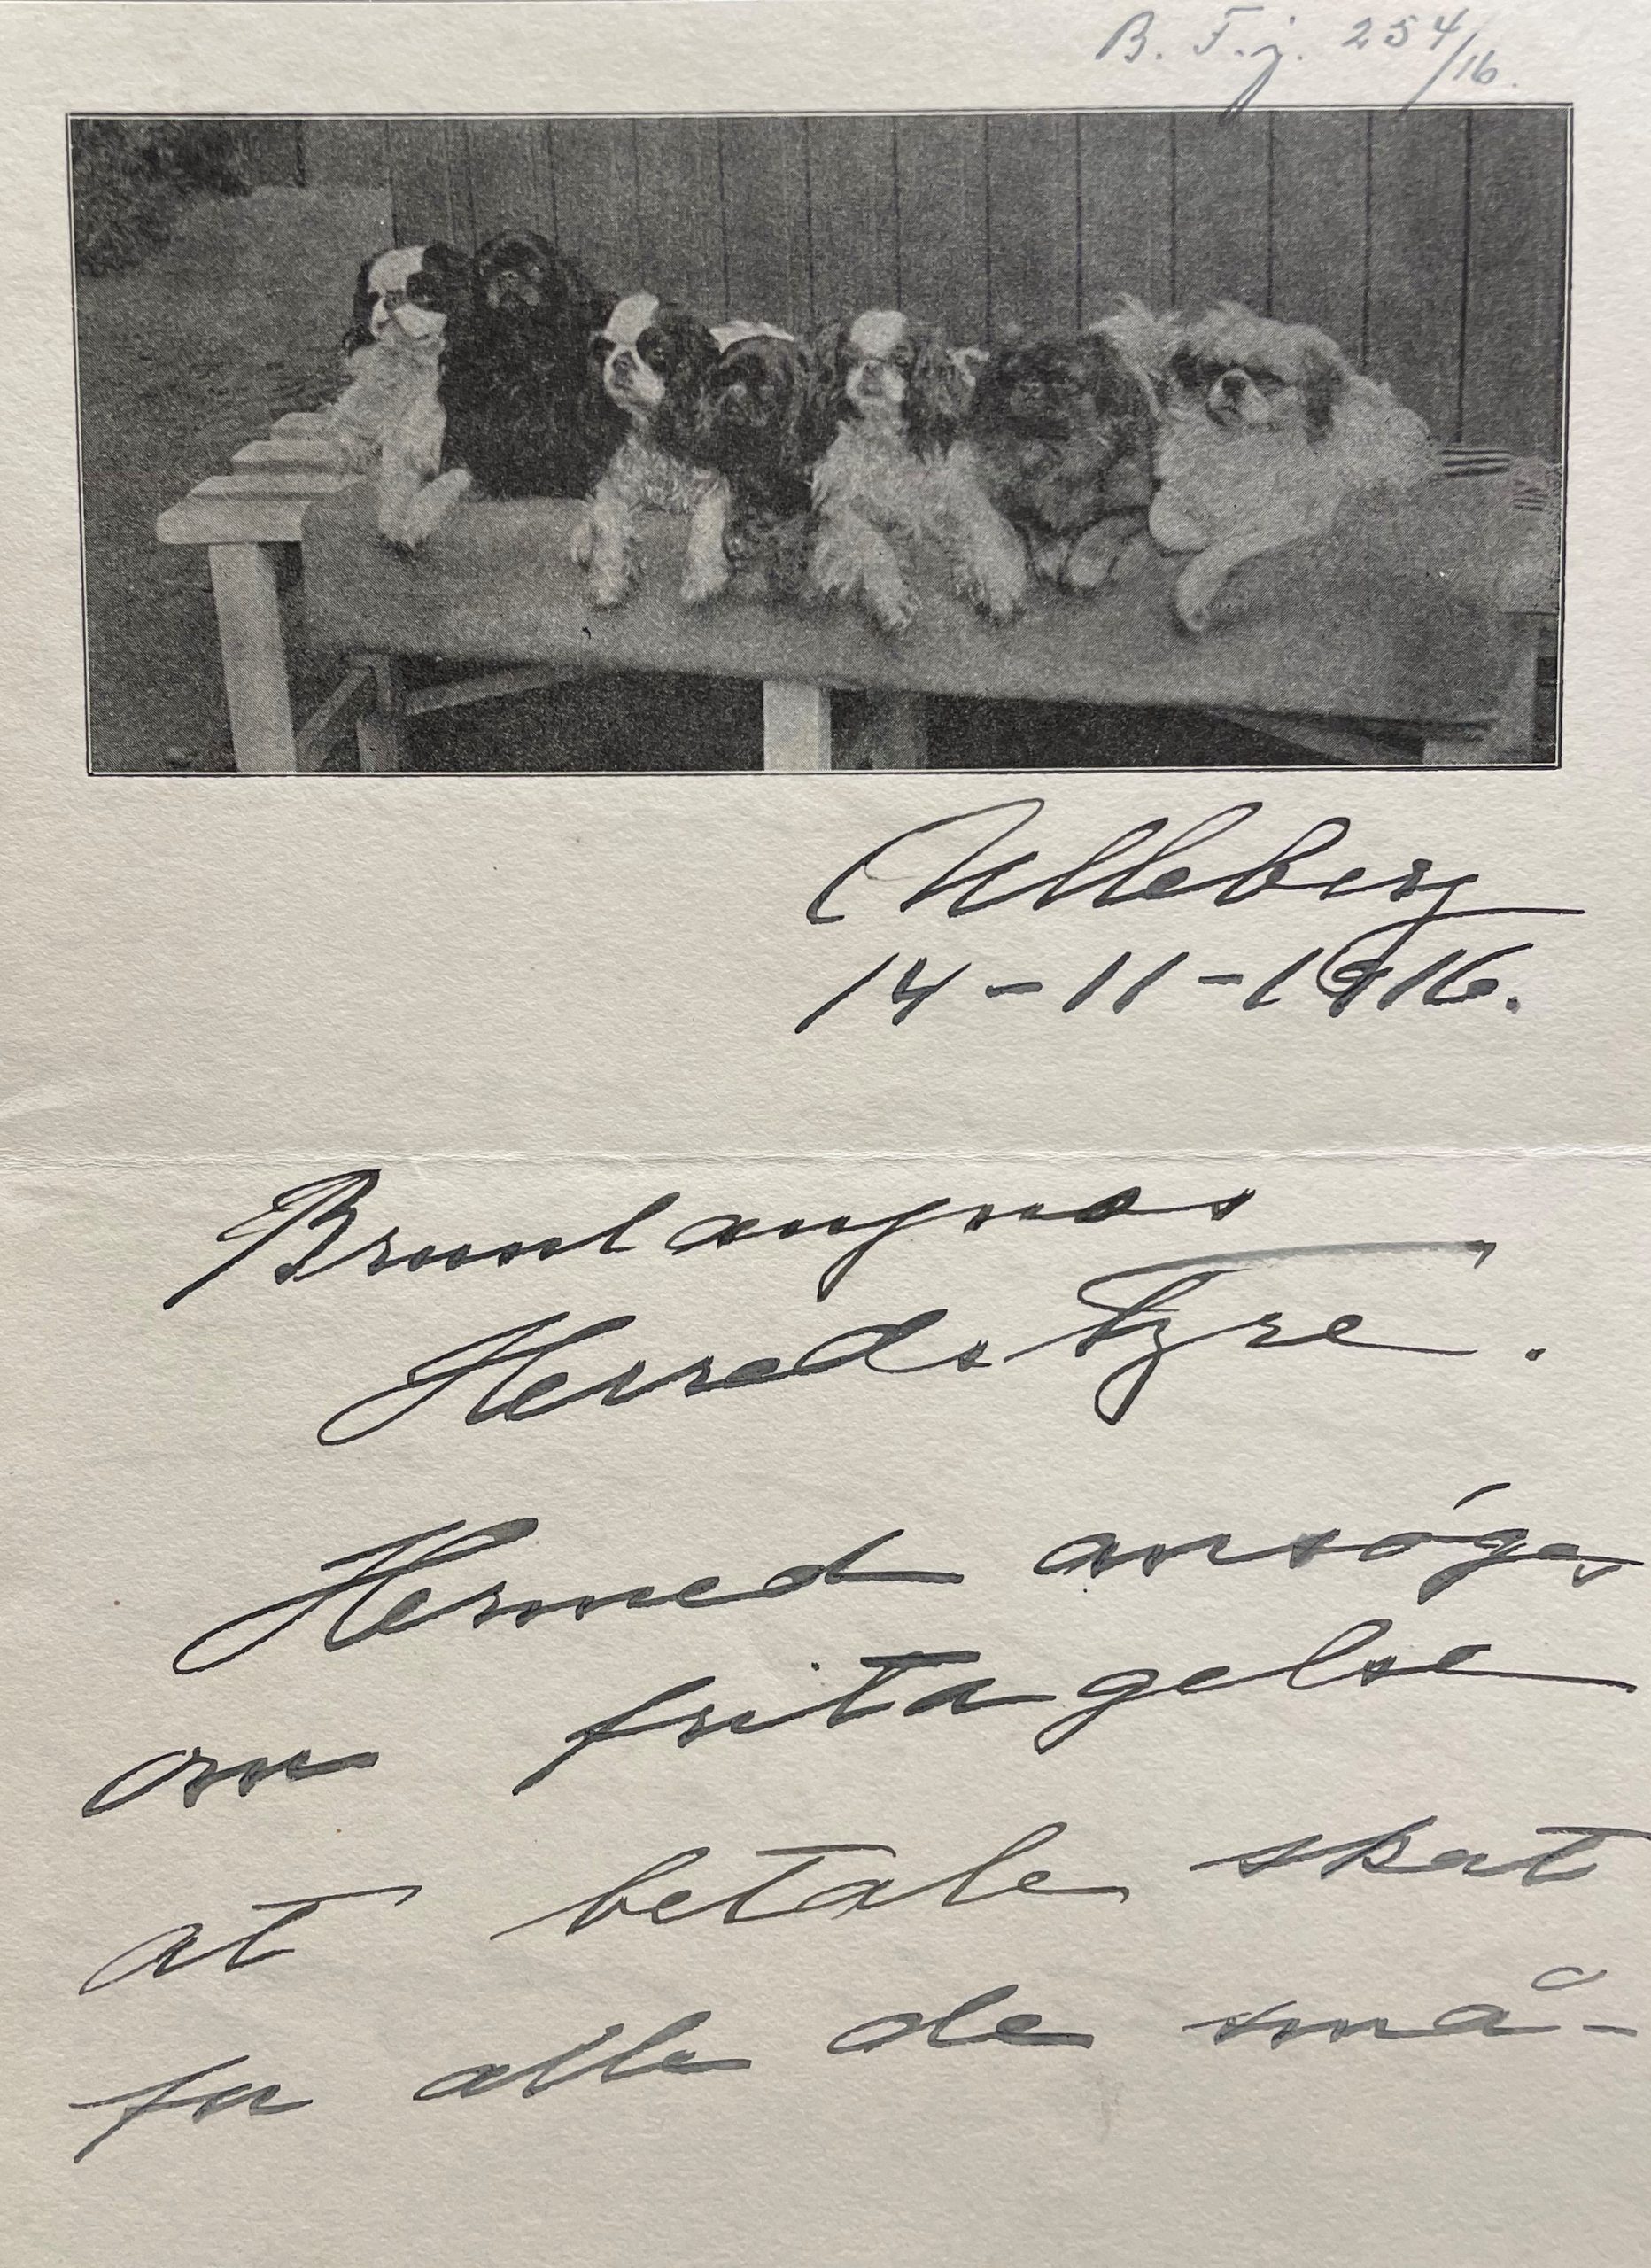 B. F. j. 254/16.
Ulleberg
14-11-1916.
Brunlangnes
Herredstyre.
Hermed ansøges
om fritagelse
at betale skat
for alle de små-